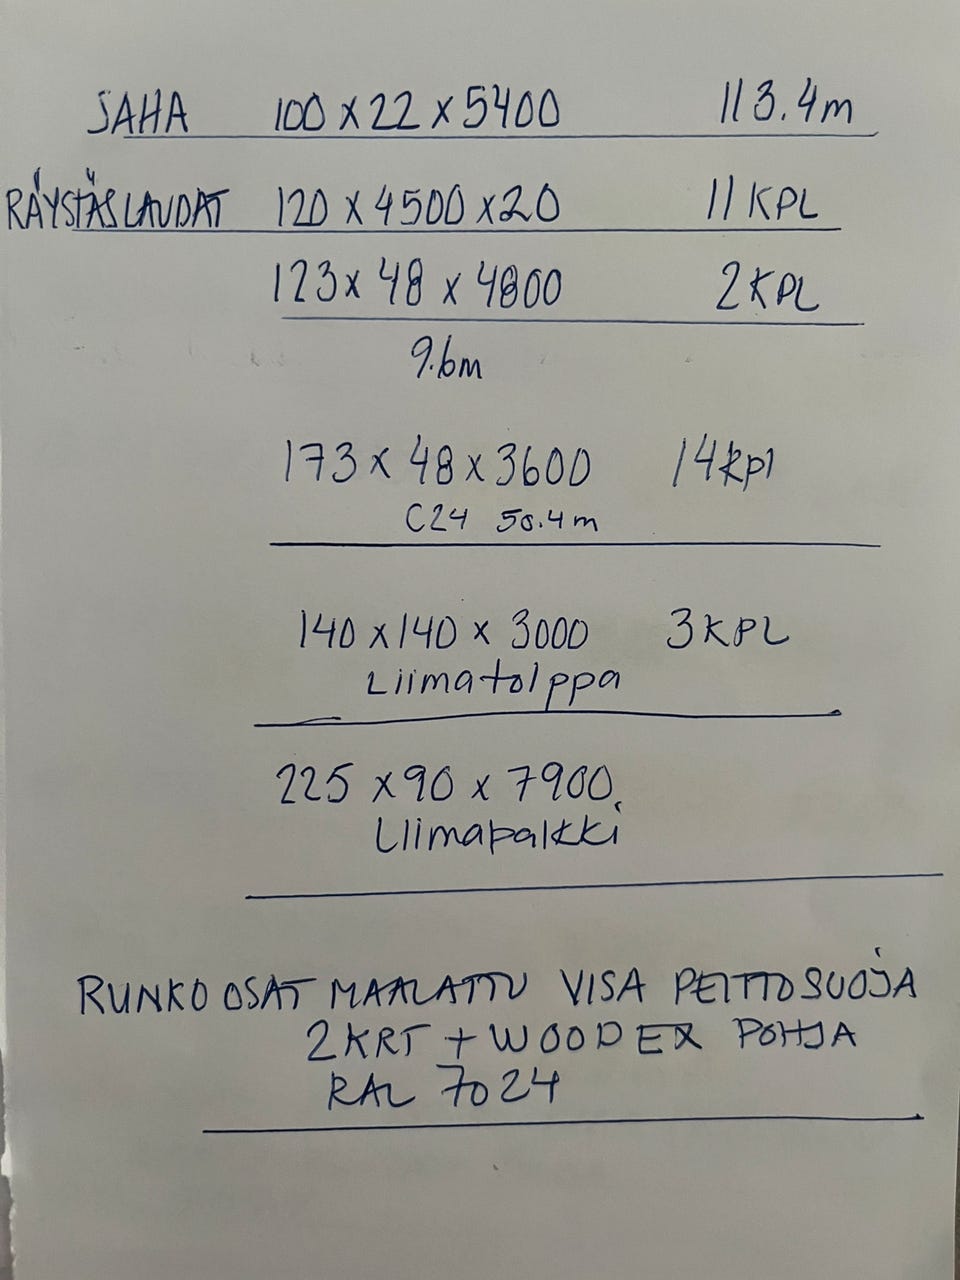 SAHA 100 x 22 x 5400 113.4m
RÄYSTÄSLAUDAT 120 x 4500 x 20 11 KPL
123 x 48 x 4800 2 KPL
9.6m
173 x 48 x 3600 14 kpl
C24 50.4m
140 x 140 x 3000 3 KPL
Liimatolppa
225 x 90 x 7900
Liimapalkki
RUNKO OSAT MAALATTU VISA PEITTOSUOJA
2 KRT + WOODEX POHJA
RAL 7024